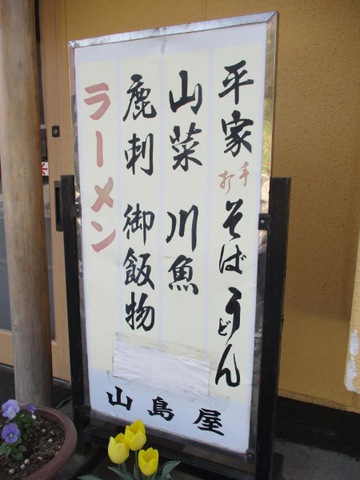 平家手打そばうどん
山菜 川魚
鹿刺 御飯物
ラーメン
山島屋